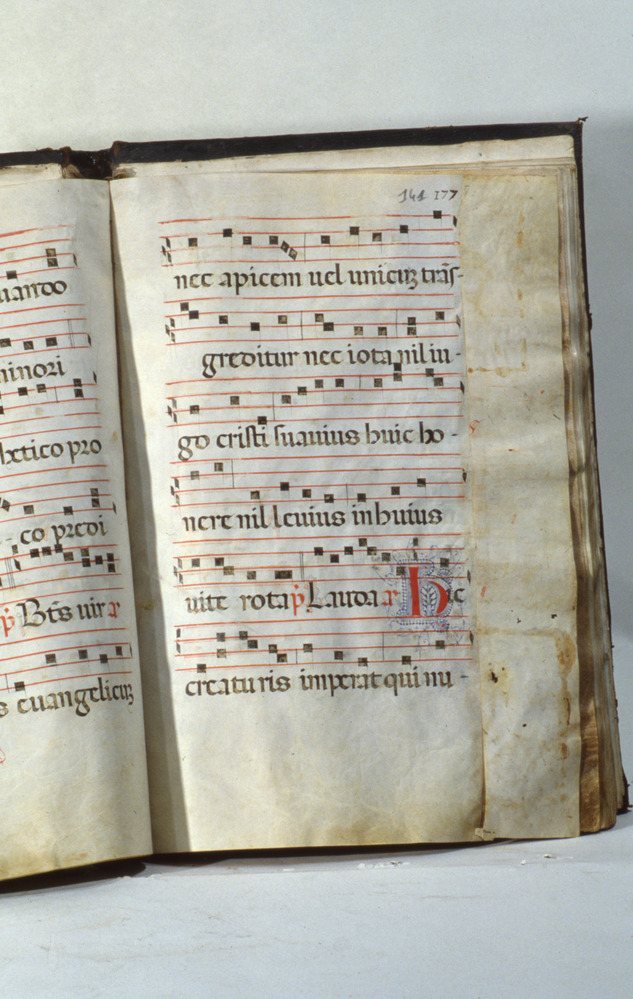 uando
minori
hetico pro
co predi
p̄ Bt̄s uir ar
s euangelicuʒ
141 177
nec apicem uel unicuʒ trās-
greditur nec iota nil iu-
go cristi suauius huic ho-
nere nil leuius in huius
uite rota p̄ Lauda ar Hic
creaturis imperat qui nu-